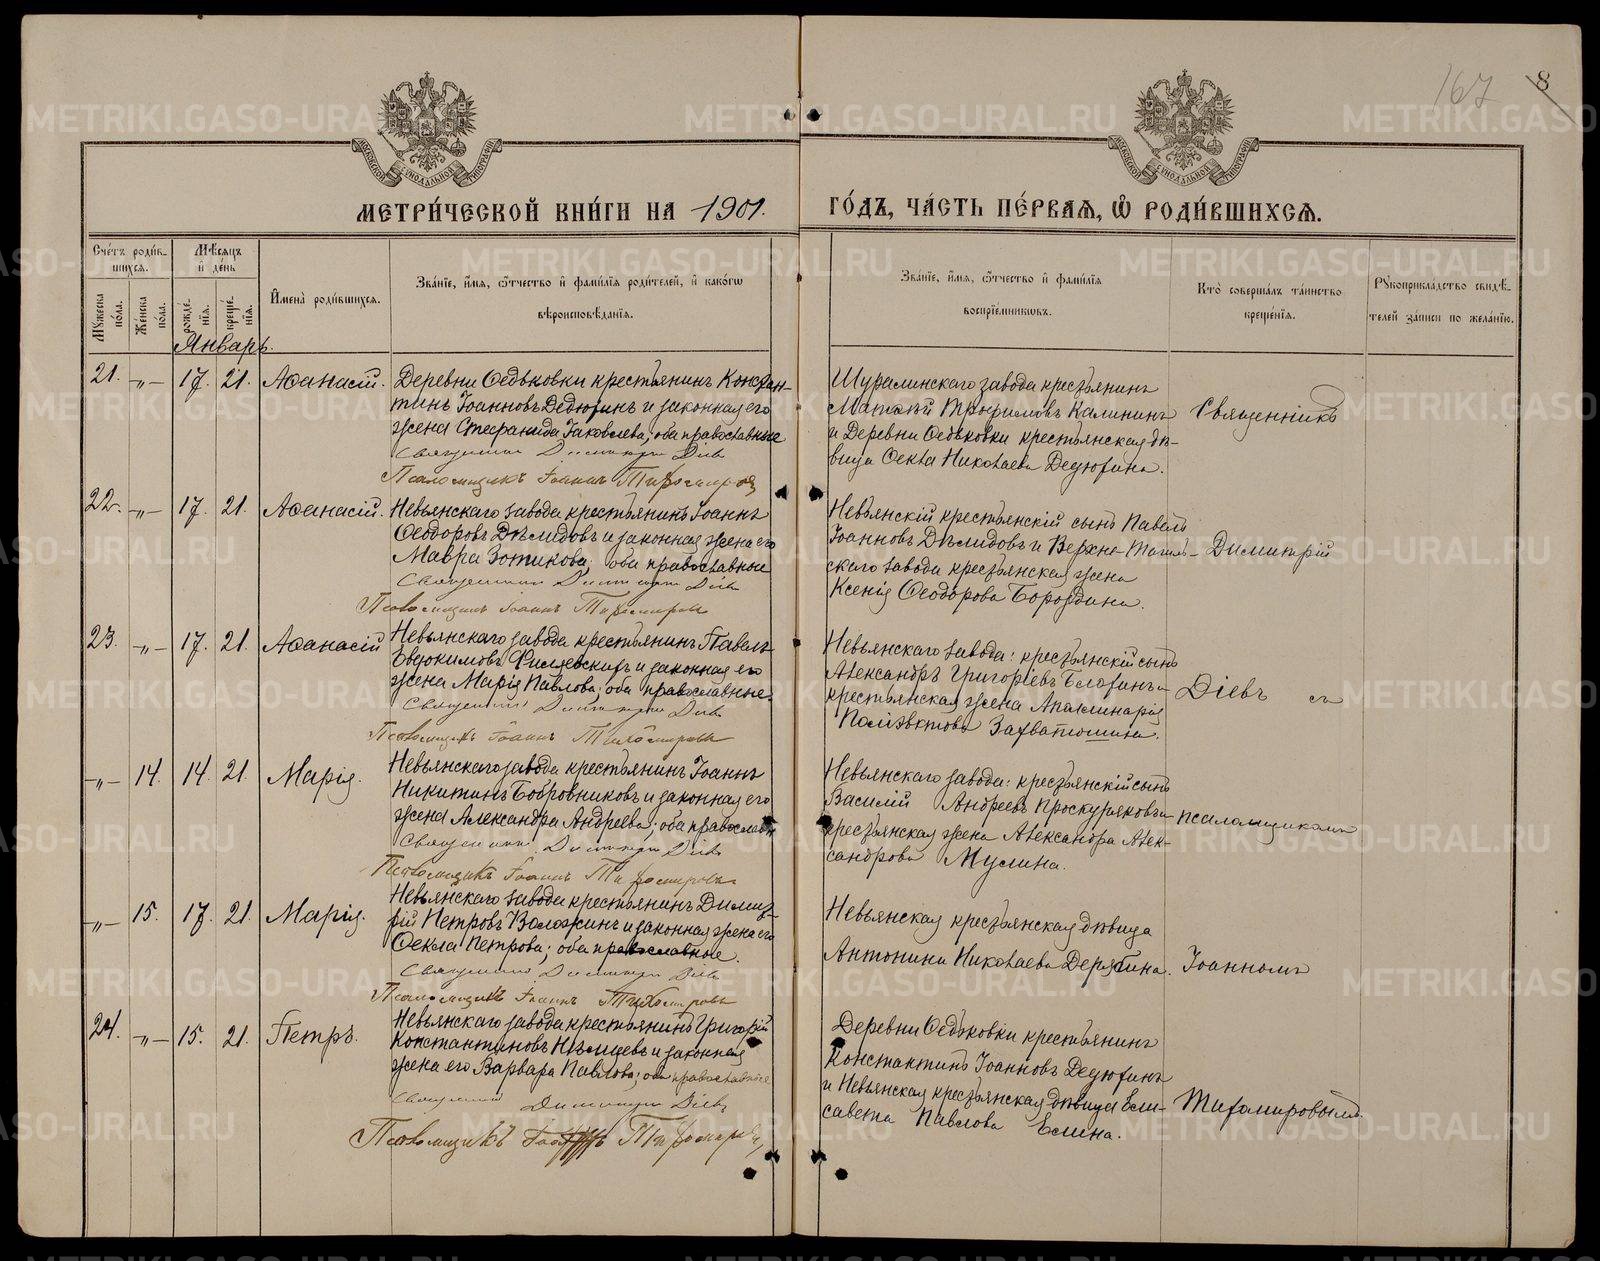 167 8
МЕТРИ́ЧЕСКОЙ КНИ́ГИ НА 1901. ГО́ДЪ, ЧА́СТЬ ПЕ́РВАѦ, Ѡ҆ РОДИ́ВШИХСѦ.
Сче́тъ роди́в-
шихсѧ.
Мѣ́сѧцъ
и҆ день
Мꙋ́жеска
по́ла.
Же́нска
по́ла.
рожде́-
нїѧ.
креще́-
нїѧ.
И҆мена̀ роди́вшихсѧ.
Зва́нїе, и҆́мѧ, ѻ҆́тчество и҆ фами́лїѧ роди́телей, и҆ како́гѡ
вѣроисповѣ́данїѧ.
Зва́нїе, и҆́мѧ, ѻ҆́тчество и҆ фами́лїѧ
воспрїе́мникѡвъ.
Кто̀ соверша́лъ та́инство
креще́нїѧ.
Рꙋкоприкла́дство свидѣ́-
телей за́писи по жела́нїю.
Январь.
21. -„- 17. 21. Аѳанасій.
Деревни Ѳедьковки крестьянинъ Констан-
тинъ Іоанновъ Дедюхинъ и законная его
жена Стефанида Іаковлева; оба православные
Священникъ Димитрій Діевъ
Псаломщикъ Іоаннъ Тихомировъ
Шуралинскаго завода крестьянинъ
Матѳій Трофимовъ Калининъ
и Деревни Ѳедьковки крестьянская дѣ-
вица Ѳекла Николаева Дедюхина.
Священникъ
22. -„- 17. 21. Аѳанасій.
Невьянскаго завода крестьянинъ Іоаннъ
Ѳеодоровъ Дѣмидовъ и законная жена его
Мавра Зотикова; оба православные
Священникъ Димитрій Діевъ
Псаломщикъ Іоаннъ Тихомировъ
Невьянскій крестьянскій сынъ Павелъ
Іоанновъ Дѣмидовъ и Верхне-Тагиль-
скаго завода крестьянская жена
Ксенія Ѳеодорова Бороздина.
Димитрій
23. -„- 17. 21. Аѳанасій
Невьянскаго завода крестьянинъ Павелъ
Евдокимовъ и законная его
жена Марія Павлова; оба православные
Священникъ Димитрій Діевъ
Псаломщикъ Іоаннъ Тихомировъ
Невьянскаго завода: крестьянскій сынъ
Александръ Григоріевъ и
крестьянская жена Аполлинарія
Поліэвктова Захваткошина.
Діевъ съ
-„- 14. 14. 21. Марія.
Невьянскаго завода крестьянинъ Іоаннъ
Никитинъ Бобровниковъ и законная его
жена Александра Андреева; оба православн
Священникъ Димитрій Діевъ
Псаломщикъ Іоаннъ Тихомировъ
Невьянскаго завода: крестьянскій сынъ
Василій Андреевъ Проскуряковъ и
крестьянская жена Александра Алек-
сандрова Мулина.
псаломщикомъ
-„- 15. 17. 21. Марія.
Невьянскаго завода крестьянинъ Димит-
рій Петровъ Воложинъ и законная жена его
Ѳекла Петрова; оба православные.
Священникъ Димитрій Діевъ
Псаломщикъ Іоаннъ Тихомировъ
Невьянская крестьянская дѣвица
Антонина Николаева Дерябина.
Іоанномъ
24. -„- 15. 21. Петръ.
Невьянскаго завода крестьянинъ Григорій
Константиновъ Нѣмцевъ и законная
жена его Варвара Павлова; оба православные
Священникъ Димитрій Діевъ
Псаломщикъ Іоаннъ Тихомировъ
Деревни Ѳедьковки крестьянинъ
Константинъ Іоанновъ Дедюхинъ
и Невьянская крестьянская дѣвица Ели-
савета Павлова Елина.
Тихомировымъ.
METRIKI.GASO-URAL.RU